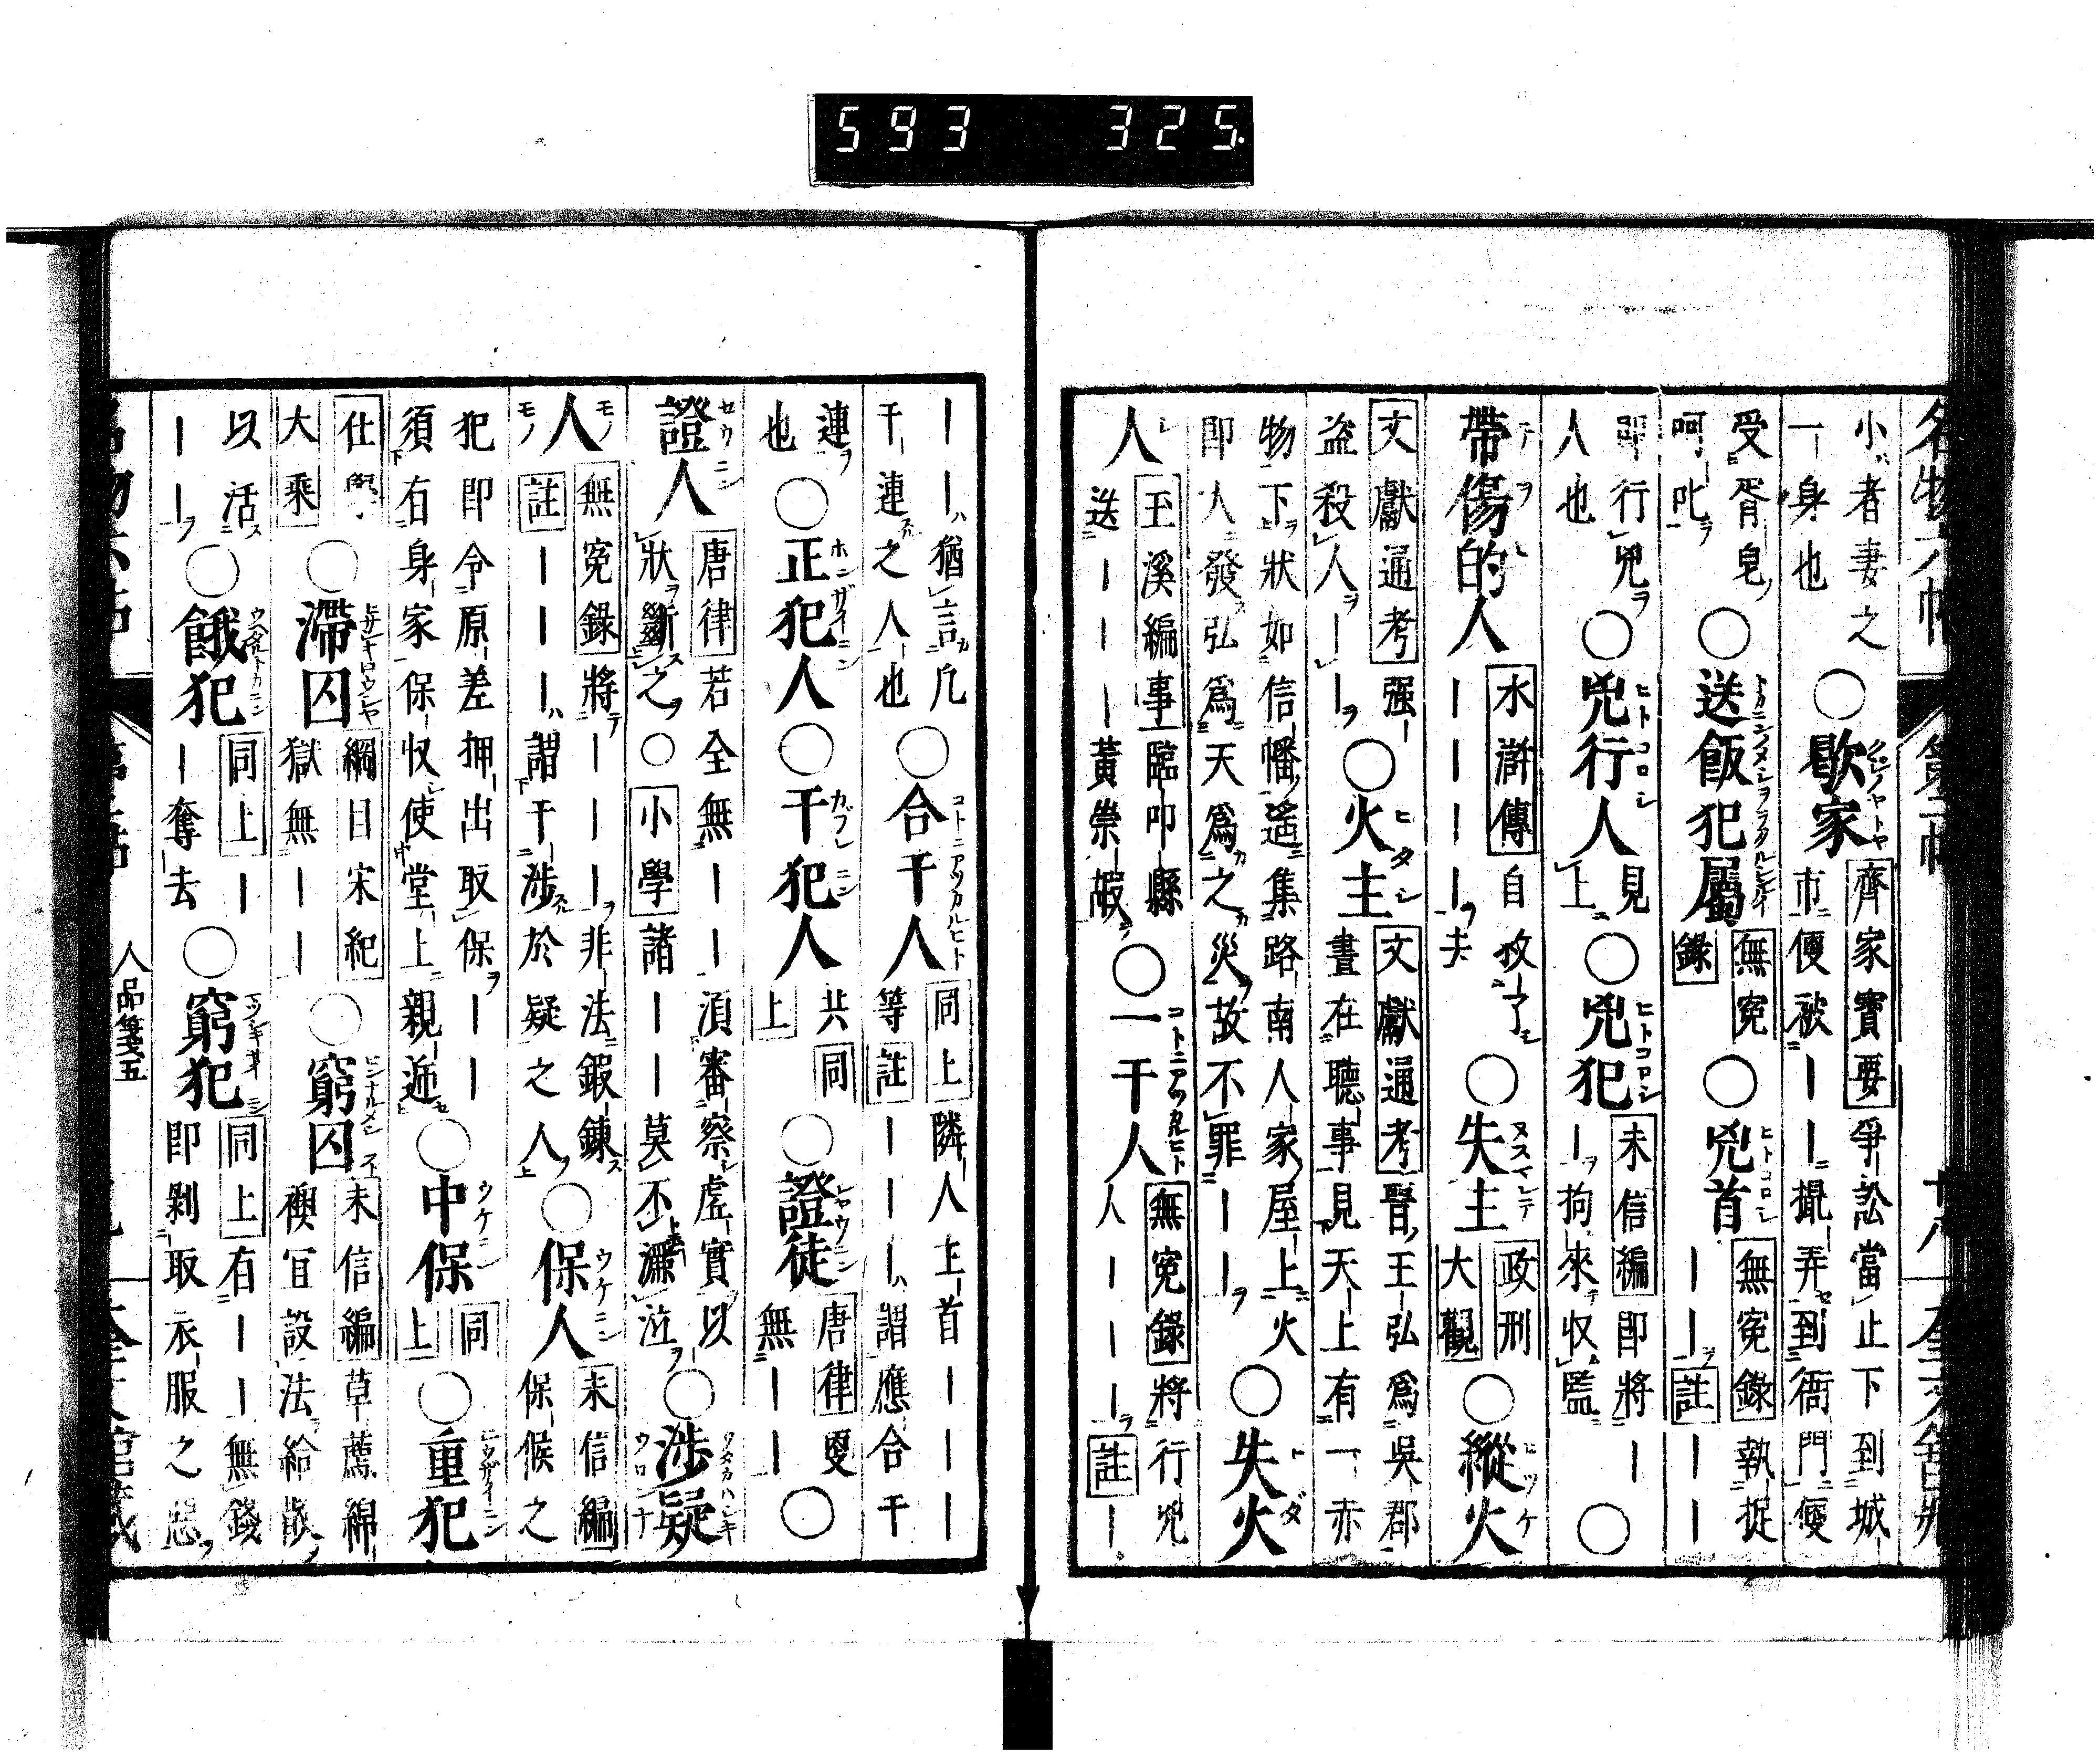 593 325.
小者妻之一身也○歇家[齊家寶要]爭訟當止下到城市便被――撮弄到衙門便
受胥皂呵叱○送飯犯屬[無寃錄]○兇首[無寃錄]執捉――[註]――
即行兇人也○兇行人見上○兇犯[未信編]即將―――拘來収監○
帶傷的人[水滸傳]自攻了――――夫○失主[政刑大觀]○縱火
[文獻通考]强盜殺人――○火主[文獻通考]晉王弘爲吳郡晝在聽事見天上有一赤
物下狀如信幡遙集路南人家屋上火即大發弘爲天爲之災故不罪――○失火
人[玉溪編事]臨卭縣送――――黃崇嘏○一干人[無寃錄]將行兇人―――[註]―
――猶言凢干連之人也○合干人[同上]隣人主首――――等[註]―――謂應合干
連也○正犯人○干犯人共[同上]○證徒[唐律]更無――○
證人[唐律]若全無――湏審察虛實以狀斷之○[小學]諸――莫不濉泣○涉疑
人[無寃錄]將―――非法鍜鍊[註]―――謂干涉於疑之人○保人[未信編]保候之
犯即令原差押出取保――須有身家保収使堂上親逓○中保[同上]○重犯
[仕學大乘]○滯囚[綱目宋紀]獄無――○窮囚[未信編]草薦綿襖冝設法給散
以活――○餓犯[同上]――奪去○窮犯[同上]有――無錢即剝取衣服之惡
人品箋五